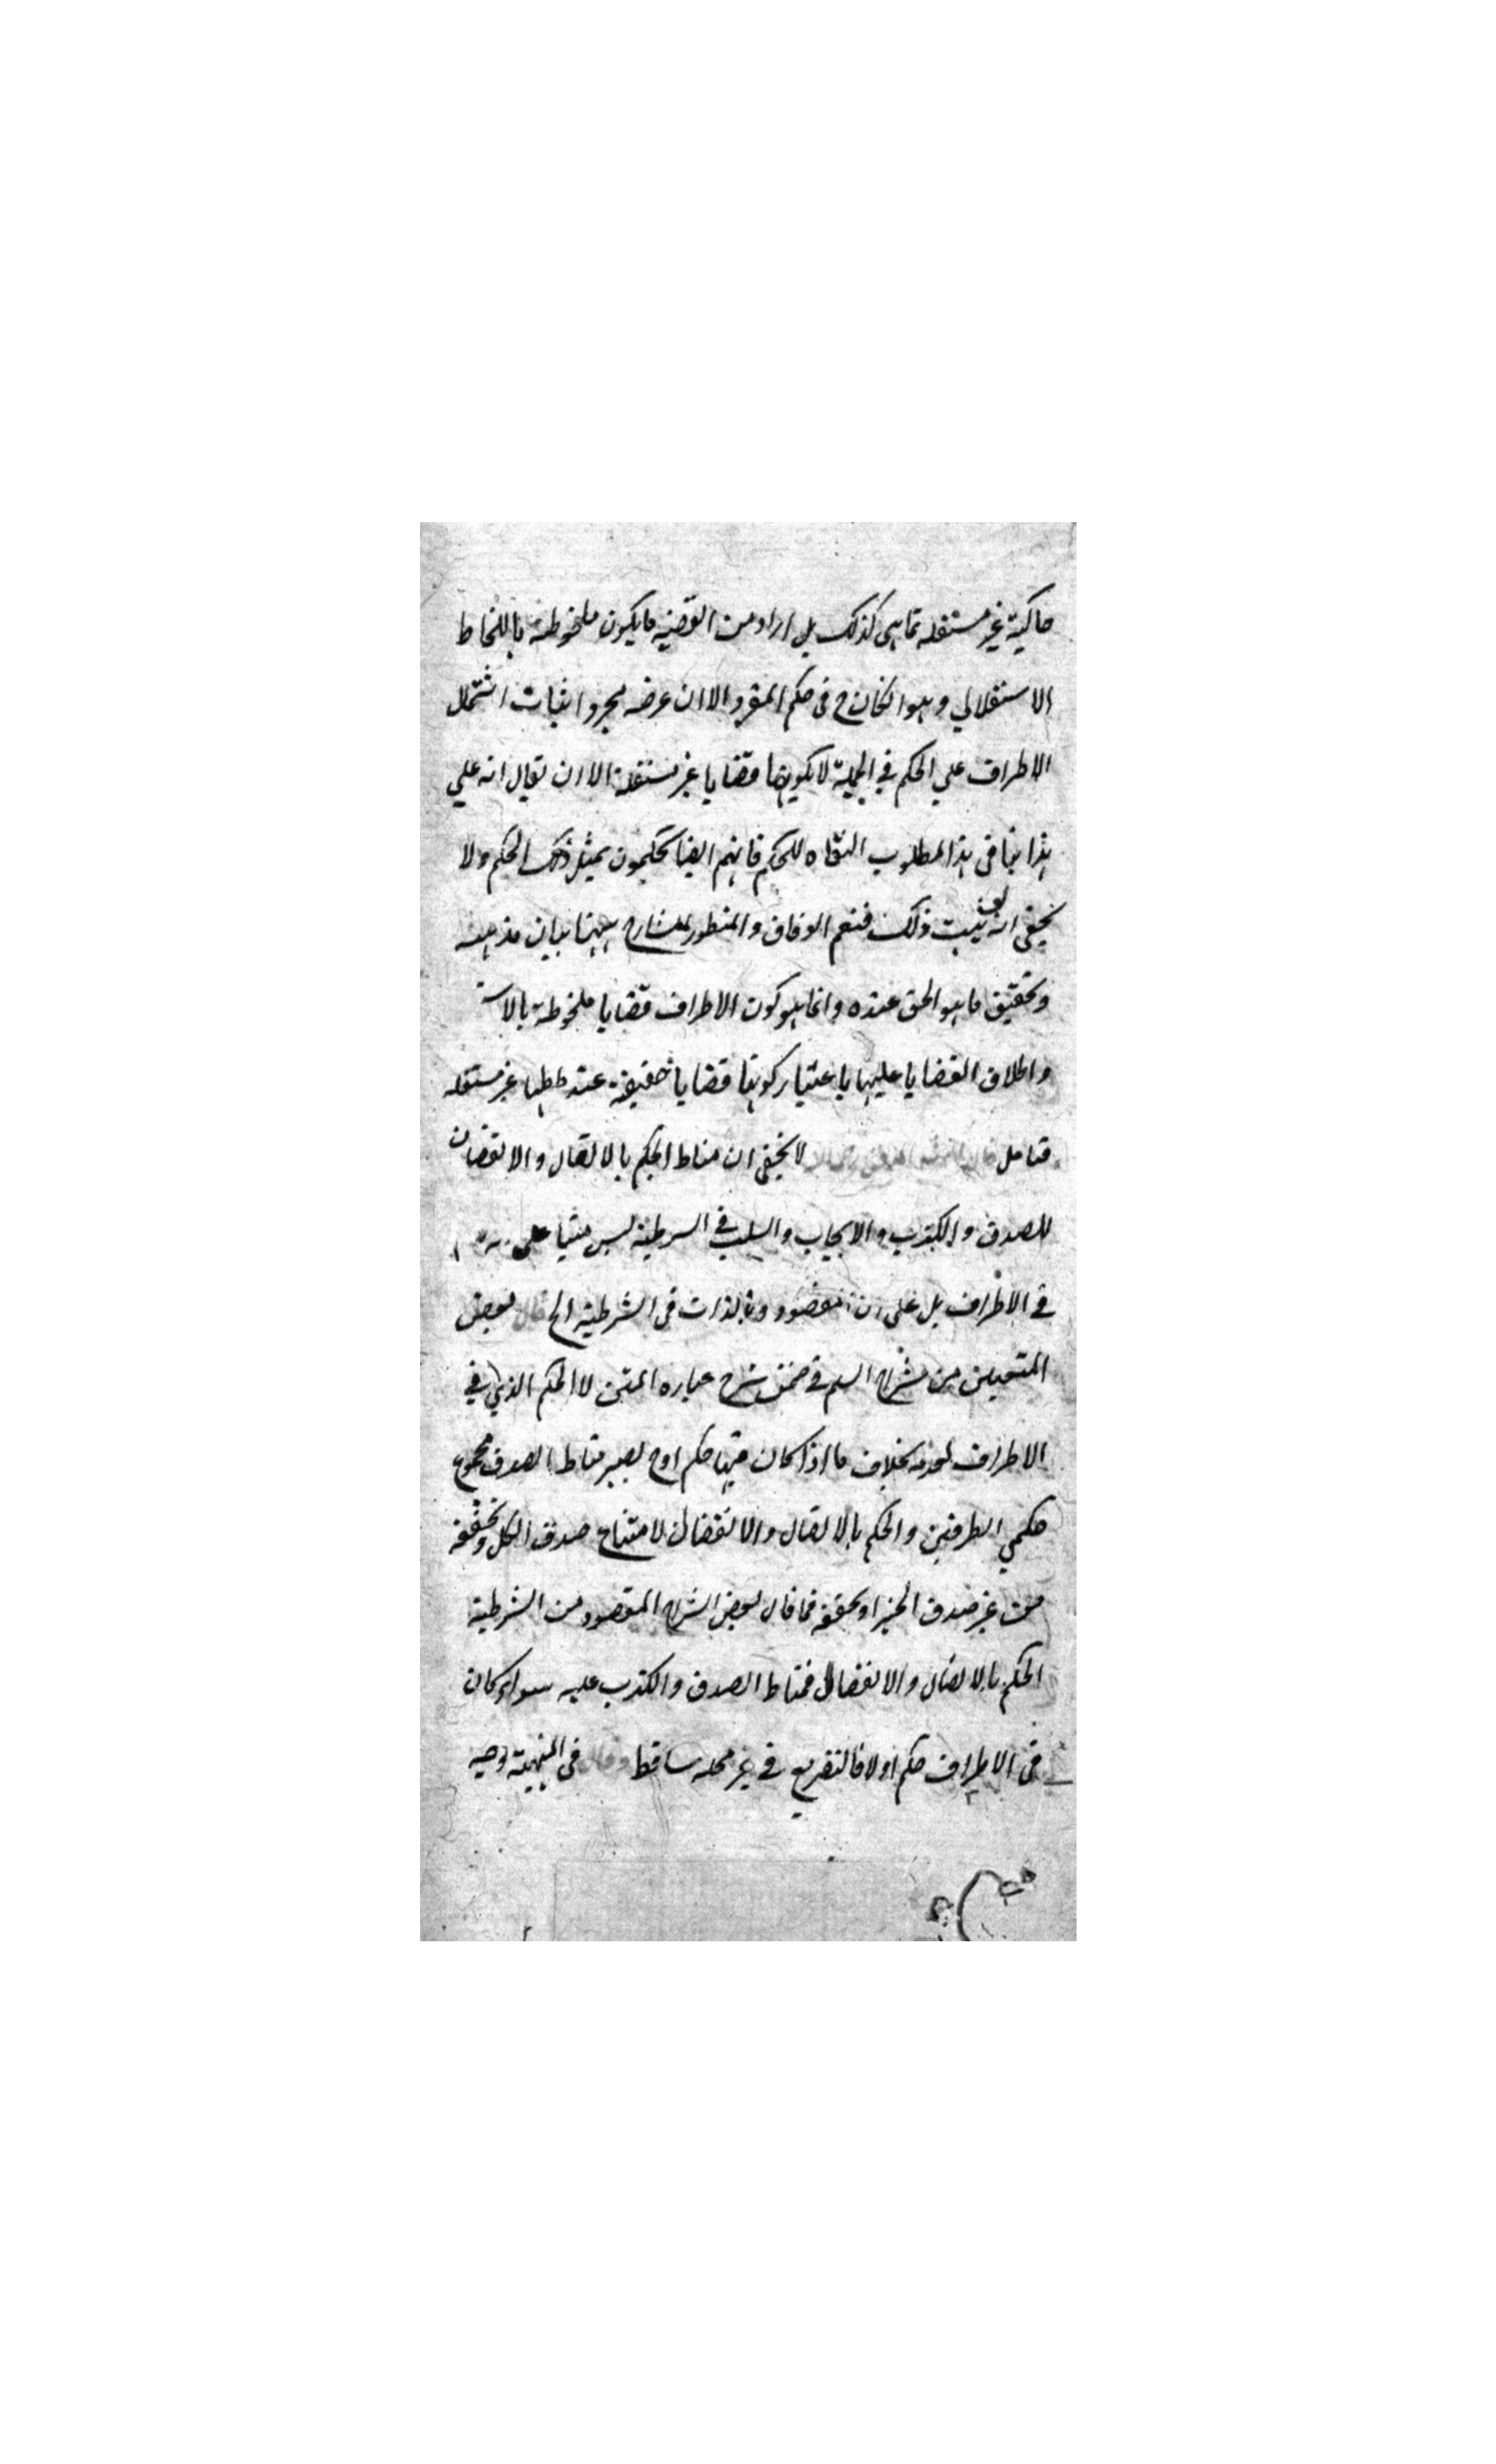 حاكية غير مستقله تماهى كذلك بل اراد من القضيه مايكون ملحوظة باللحاظ
الاستقلالي وهو الكان ح فى حكم المفرد الا ان غرضه مجرد اثبات اشتمال
الاطراف علي الحكم في الجملة لا بكونها قضايا غير مستقلة الا ان يقال انه علي
هذا ينافى هذا المطلوب النقاه للحكم فانهم ايضا يحكمون بمثل ذلك الحكم ولا
يخفى انه لو ثبت ذلك فنعم الوفاق والمنظور للشارح ههنا بيان مذهبه
وتحقيق ماهو الحق عنده وانما هو كون الاطراف قضايا ملحوظة بالاست
واطلاق القضايا عليها باعتبار كونها قضايا حقيقة عند غير مستقله
فتامل لا يخفى ان مناط الحكم بالاتصال والانفصال
للصدق والكذب والايجاب والسلب في الشرطية ليس مبنيا على
في الاطراف بل على ان المقصود بالذات فى الشرطية الخ قال بعض
من شراح السلم في ضمن شرح عباره المتن لا الحكم الذي في
الاطراف بخلاف ما اذا كان فيها حكم اوح يصير مناط الصدق مجموع
حكمي الطرفين والحكم بالاتصال والانفصال لامتناع صدق الكل وتحققه
من غير صدق الجزء او تحققه فما قال بعض الشراح المقصود من الشرطية
الحكم بالاتصال والانفصال فمناط الصدق والكذب عليه سواء كان
فى الاطراف حكم اولا فالتفريع في غير محله ساقط وقال فى المنهية وجيه